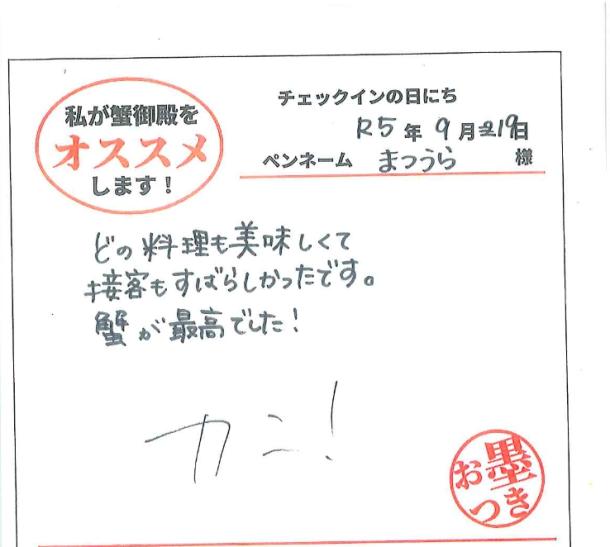 私が蟹御殿を
オススメ
します！
チェックインの日にち
R5年9月19日
ペンネーム まつうら 様
どの料理も美味しくて
接客もすばらしかったです。
蟹が最高でした！
カニ！
お墨
つき